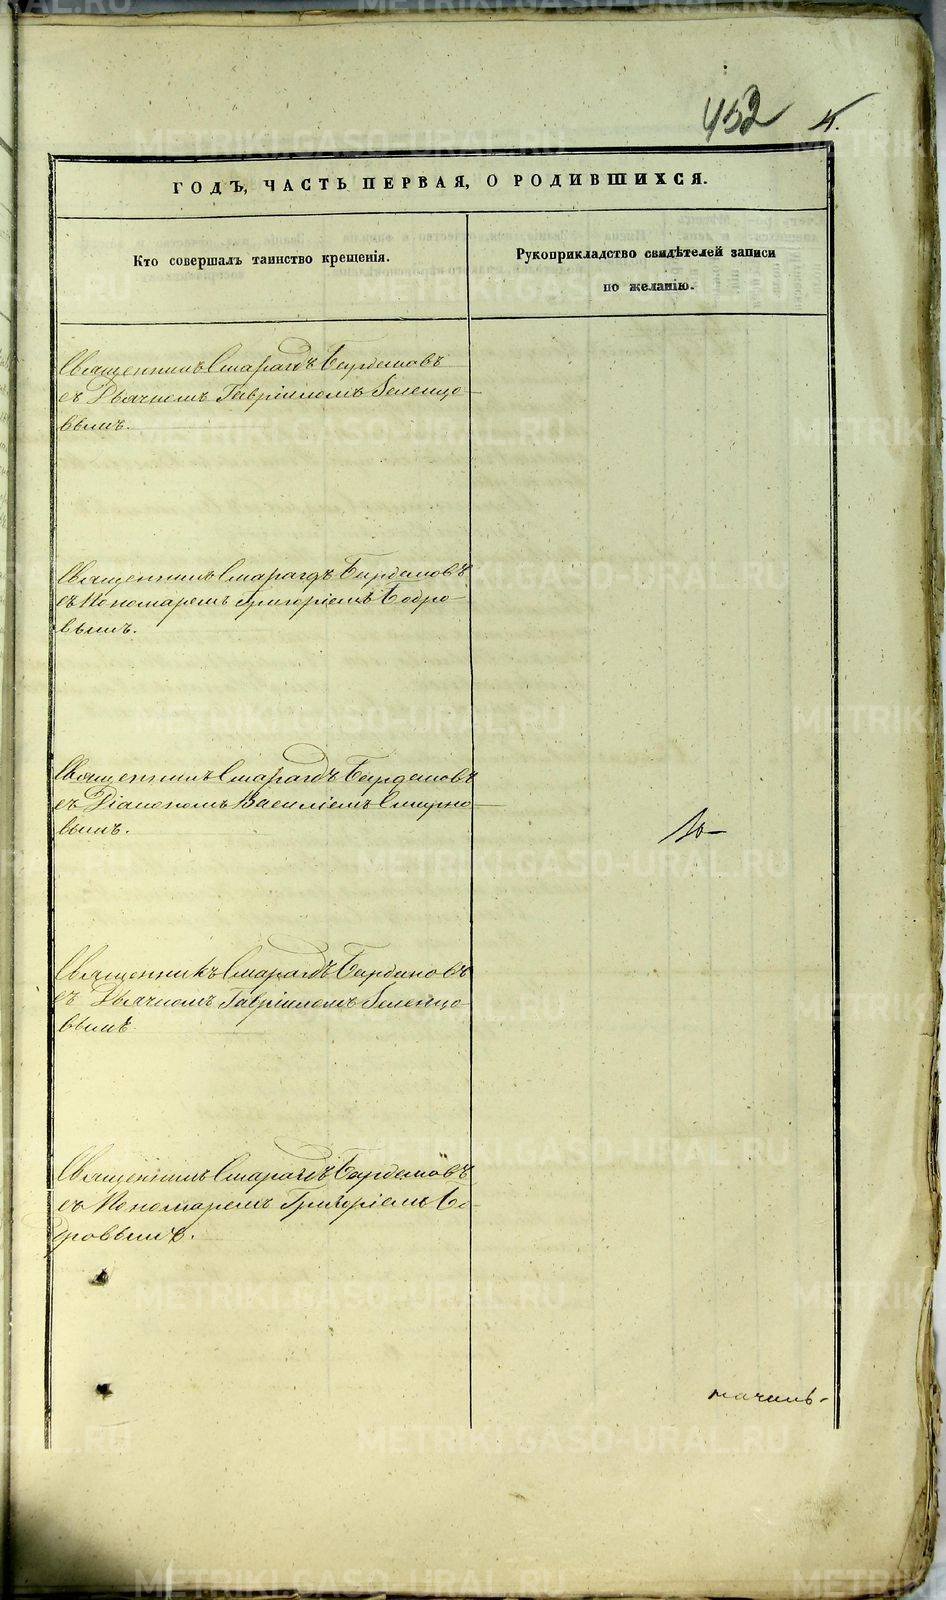 452 4.
ГОДЪ, ЧАСТЬ ПЕРВАЯ, О РОДИВШИХСЯ.
Кто совершалъ таинство крещенія.
Рукоприкладство свидѣтелей записи
по желанію.
Священникъ Смарагдъ
съ Дьячкомъ Гавріиломъ Зеленцо-
вымъ.
Священникъ Смарагдъ
съ Пономаремъ Григоріемъ Бобро-
вымъ.
Священникъ Смарагдъ
съ Діакономъ Василіемъ Смирно-
вымъ.
Священникъ Смарагдъ
съ Дьячкомъ Гавріиломъ Зеленцо-
вымъ
Священникъ Смарагдъ
съ Пономаремъ Григоріемъ Бо-
бровымъ.
METRIKI.GASO-URAL.RU